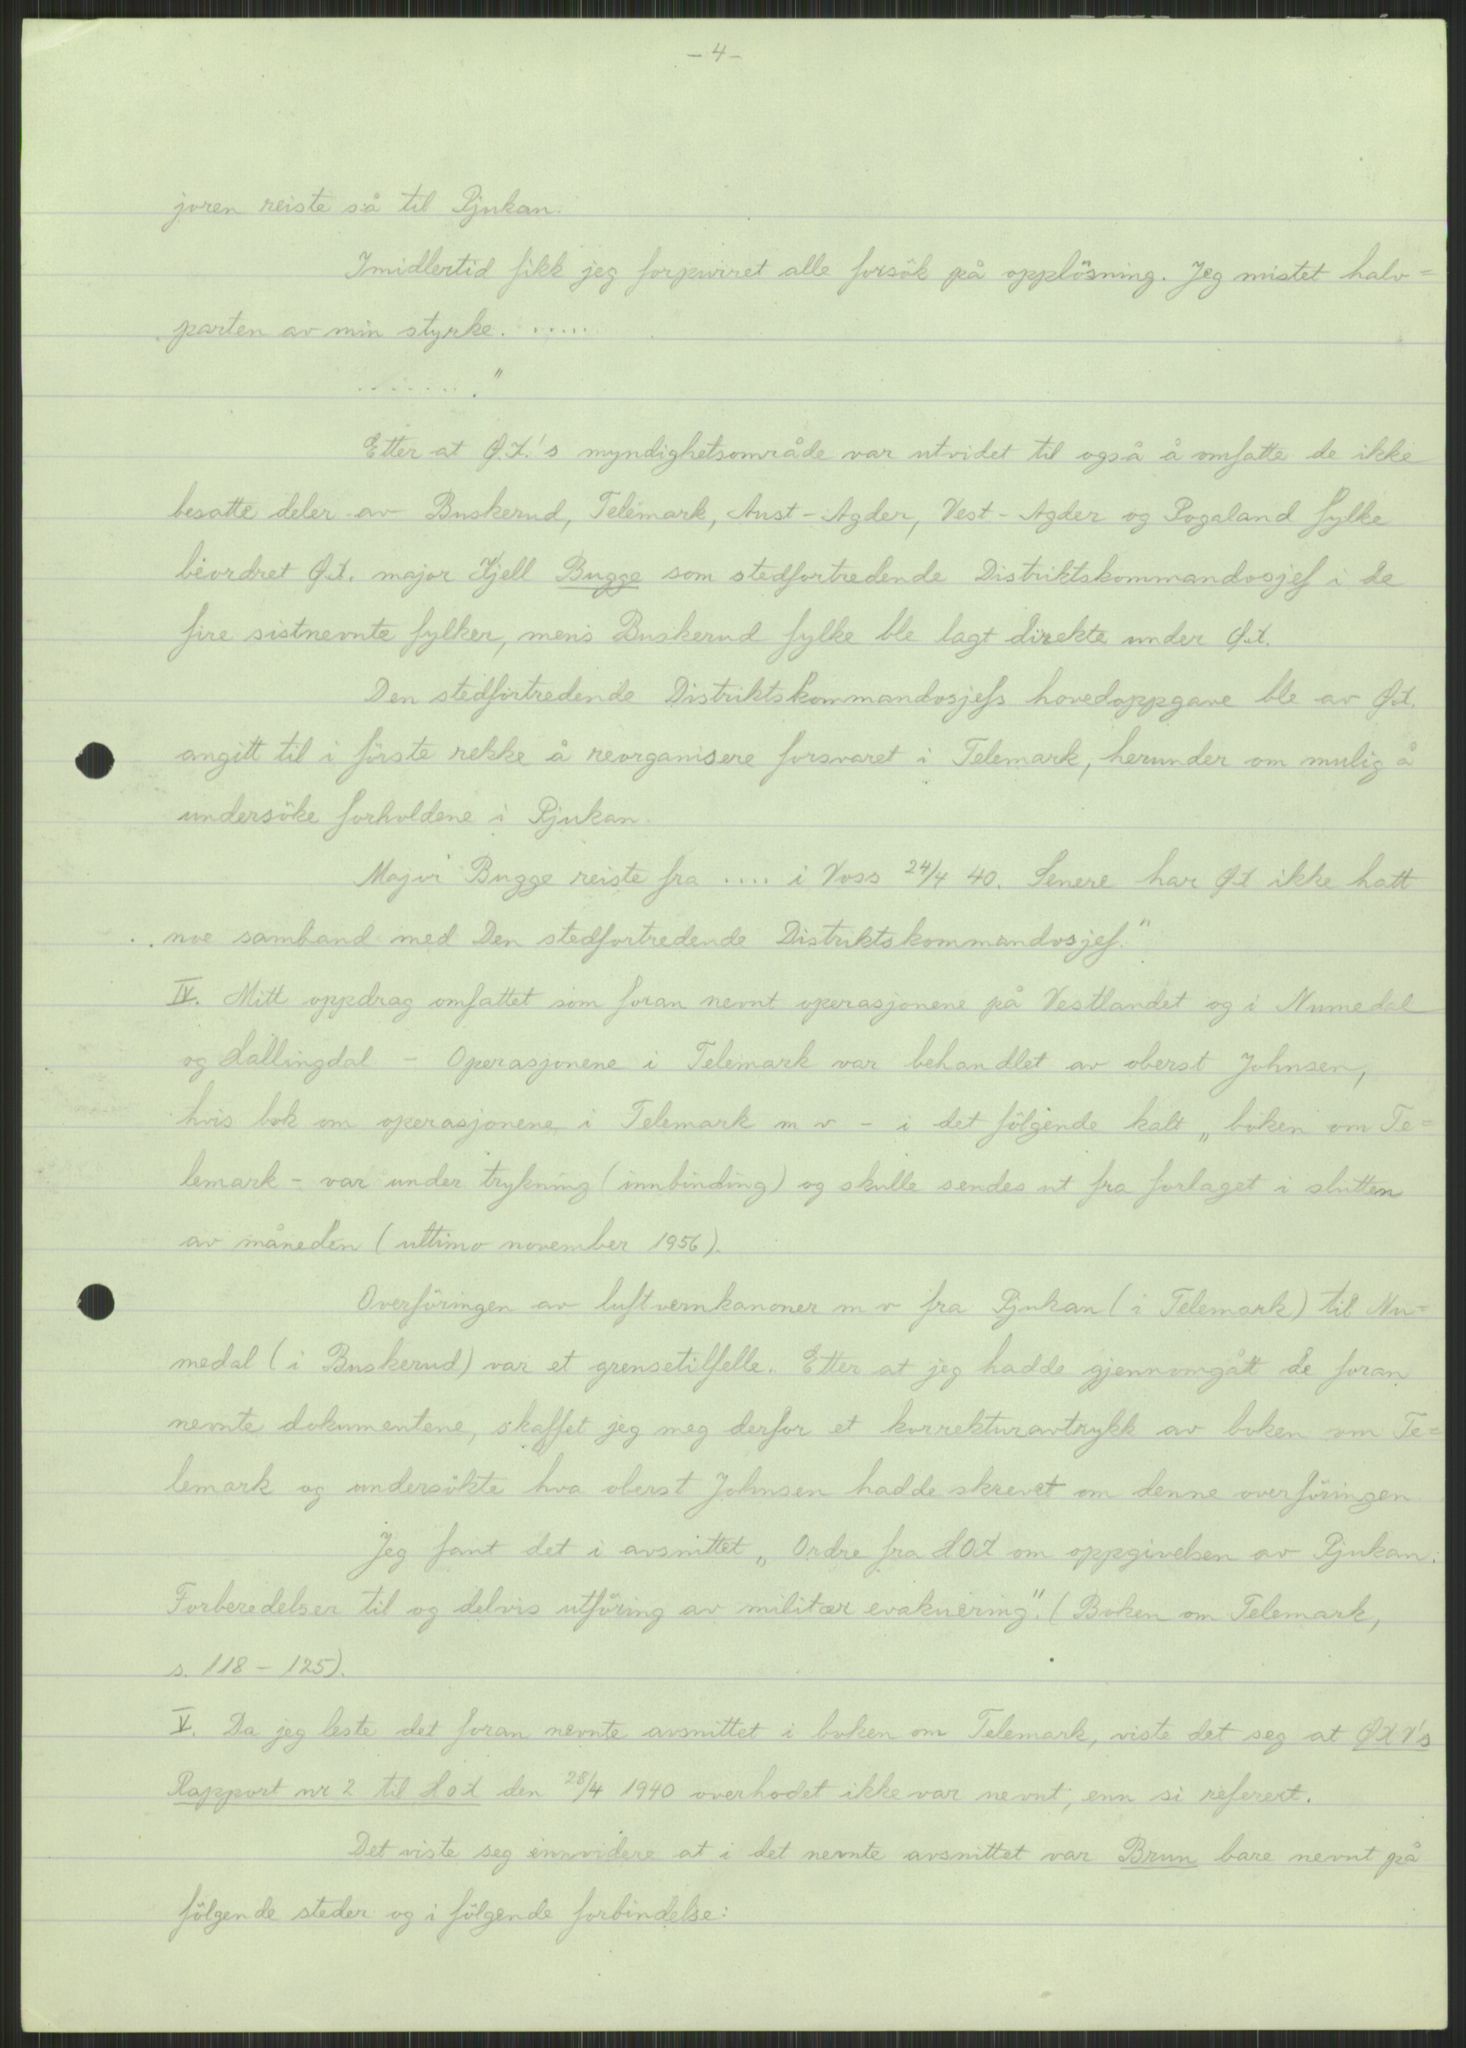 - 4 -
joren reiste så til Rjukan.
Imidlertid fikk jeg forpurret alle forsök på opplösning. Jeg mistet halv=
parten av min styrke. .....
........."
Etter at Ø.K.'s myndighetsområde var utvidet til også å omfatte de ikke
besatte deler av Buskerud, Telemark, Aust-Agder, Vest-Agder og Rogaland fylke
beordret Ø.K. major Kjell Bugge som stedfortredende Distriktskommandosjef i de
fire sistnevnte fylker, mens Buskerud fylke ble lagt direkte under Ø.K.
Den stedfortredende Distriktskommandosjefs hovedoppgave ble av Ø.K.
angitt til i förste rekke å reorganisere forsvaret i Telemark, herunder om mulig å
undersöke forholdene i Rjukan.
Major Bugge reiste fra .... i Voss 24/4 40. Senere har ØK ikke hatt
noe samband med Den stedfortredende Distriktskommandosjef."
IV. Mitt oppdrag omfattet som foran nevnt operasjonene på Vestlandet og i Numedal
og Hallingdal - Operasjonene i Telemark var behandlet av oberst Johnsen,
hvis bok om operasjonene i Telemark m v - i det fölgende kalt „boken om Te=
lemark - var under trykning (innbinding) og skulle sendes ut fra forlaget i slutten
av måneden (ultimo november 1956).
Overföringen av luftvernkanoner m v fra Rjukan (i Telemark) til Nu=
medal (i Buskerud) var et grensetilfelle. Etter at jeg hadde gjennomgått de foran
nevnte dokumentene, skaffet jeg meg derfor et korrekturavtrykk av boken om Te=
lemark og undersökte hva oberst Johnsen hadde skrevet om denne overföringen
Jeg fant det i avsnittet „Ordre fra HOK om oppgivelsen av Rjukan.
Forberedelser til og delvis utföring av militær evakuering". (Boken om Telemark,
s. 118 - 125).
V. Da jeg leste det foran nevnte avsnittet i boken om Telemark, viste det seg at ØKV's
Rapport nr 2 til HOK den 28/4 1940 overhodet ikke var nevnt, enn si referert.
Det viste seg ennvidere at i det nevnte avsnittet var Brun bare nevnt på
fölgende steder og i fölgende forbindelse: